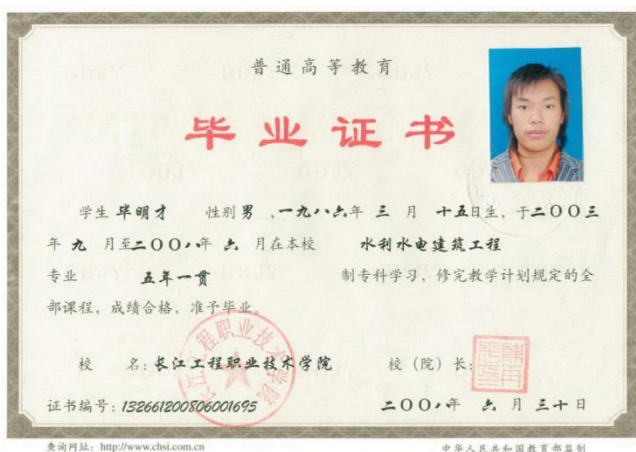 普通高等教育
毕业证书
学生 毕明才 性别 男 ,一九八六年 三 月 十五日生, 于二〇〇三
年 九 月至二〇〇八年 六 月在本校 水利水电建筑工程
专业 五年一贯 制专科学习, 修完教学计划规定的全
部课程, 成绩合格, 准予毕业。
校 名: 长江工程职业技术学院 校 (院) 长:
证书编号: 132661200806001695 二〇〇八年 六 月 三十日
查询网址: http://www.chsi.com.cn 中华人民共和国教育部监制